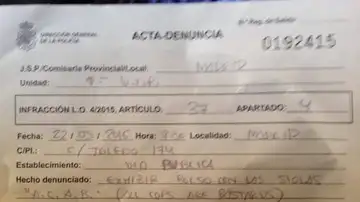 Nº Reg. de Salida
DIRECCIÓN GENERAL
DE LA POLICÍA
ACTA-DENUNCIA
0192415
J.S.P./Comisaría Provincial/Local: MADRID
Unidad:
INFRACCIÓN L.O. 4/2015, ARTÍCULO: 37 APARTADO: 4
Fecha: 22/05/2016 Hora: Localidad: MADRID
C/Pl.: C/ TOLEDO 174
Establecimiento: VIA PUBLICA
Hecho denunciado: EXHIBIR BOLSO CON LAS SIGLAS
"A.C.A.B." (ALL COPS ARE BASTARDS)